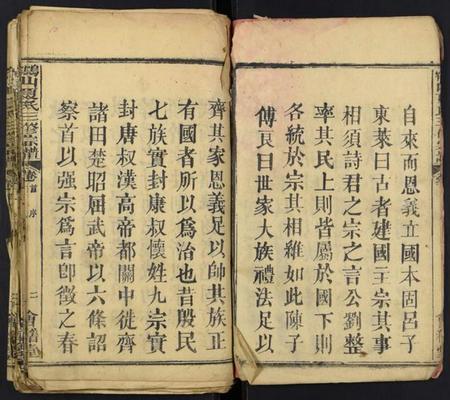 自來而恩義立國本固呂子
東萊曰古者建國主宗其事
相須詩君之宗之言公劉整
率其民上則皆屬於國下則
各統於宗其相維如此陳子
傅良曰世家大族禮法足以
齊其家恩義足以帥其族正
有國者所以爲治也昔殷民
七族實封康叔懷姓九宗實
封唐叔漢高帝都關中徙齊
諸田楚昭屈武帝以六條詔
察首以强宗爲言卽徵之春
山夏氏三修宗譜
卷首
序
二
會